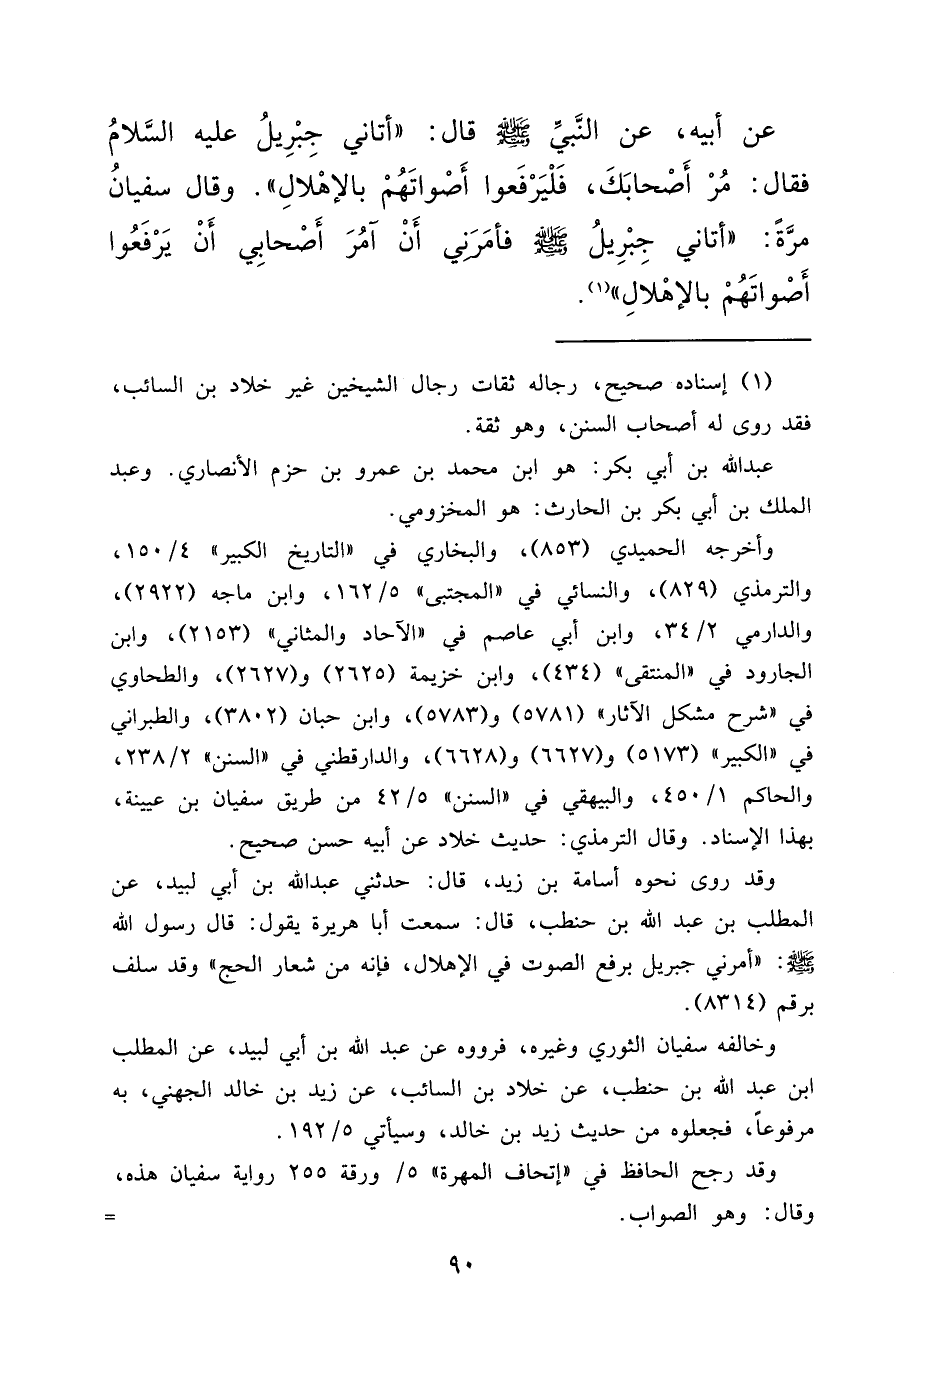 عن أبيه، عن النَّبيِّ ﷺ قال: «أتاني جِبْرِيلُ عليه السَّلامُ
فقال: مُرْ أَصْحابَكَ، فَلْيَرْفَعوا أَصْواتَهُمْ بالإهْلالِ». وقال سفيانُ
مرَّةً: «أتاني جِبْرِيلُ ﷺ فأمَرَني أَنْ آمُرَ أَصْحابي أَنْ يَرْفَعُوا
أَصْواتَهُمْ بالإهْلالِ»(١).
(١) إسناده صحيح، رجاله ثقات رجال الشيخين غير خلاد بن السائب،
فقد روى له أصحاب السنن، وهو ثقة.
عبدالله بن أبي بكر: هو ابن محمد بن عمرو بن حزم الأنصاري. وعبد
الملك بن أبي بكر بن الحارث: هو المخزومي.
وأخرجه الحميدي (٨٥٣)، والبخاري في «التاريخ الكبير» ١٥٠/٤،
والترمذي (٨٢٩)، والنسائي في «المجتبى» ١٦٢/٥، وابن ماجه (٢٩٢٢)،
والدارمي ٣٤/٢، وابن أبي عاصم في «الآحاد والمثاني» (٢١٥٣)، وابن
الجارود في «المنتقى» (٤٣٤)، وابن خزيمة (٢٦٢٥) و(٢٦٢٧)، والطحاوي
في «شرح مشكل الآثار» (٥٧٨١) و(٥٧٨٣)، وابن حبان (٣٨٠٢)، والطبراني
في «الكبير» (٥١٧٣) و(٦٦٢٧) و(٦٦٢٨)، والدارقطني في «السنن» ٢٣٨/٢،
والحاكم ٤٥٠/١، والبيهقي في «السنن» ٤٢/٥ من طريق سفيان بن عيينة،
بهذا الإسناد. وقال الترمذي: حديث خلاد عن أبيه حسن صحيح.
وقد روى نحوه أسامة بن زيد، قال: حدثني عبدالله بن أبي لبيد، عن
المطلب بن عبد الله بن حنطب، قال: سمعت أبا هريرة يقول: قال رسول الله
ﷺ: «أمرني جبريل برفع الصوت في الإهلال، فإنه من شعار الحج» وقد سلف
برقم (٨٣١٤).
وخالفه سفيان الثوري وغيره، فرووه عن عبد الله بن أبي لبيد، عن المطلب
ابن عبد الله بن حنطب، عن خلاد بن السائب، عن زيد بن خالد الجهني، به
مرفوعاً، فجعلوه من حديث زيد بن خالد، وسيأتي ١٩٢/٥.
وقد رجح الحافظ في «إتحاف المهرة» ٥/ ورقة ٢٥٥ رواية سفيان هذه،
وقال: وهو الصواب. =
٩٠